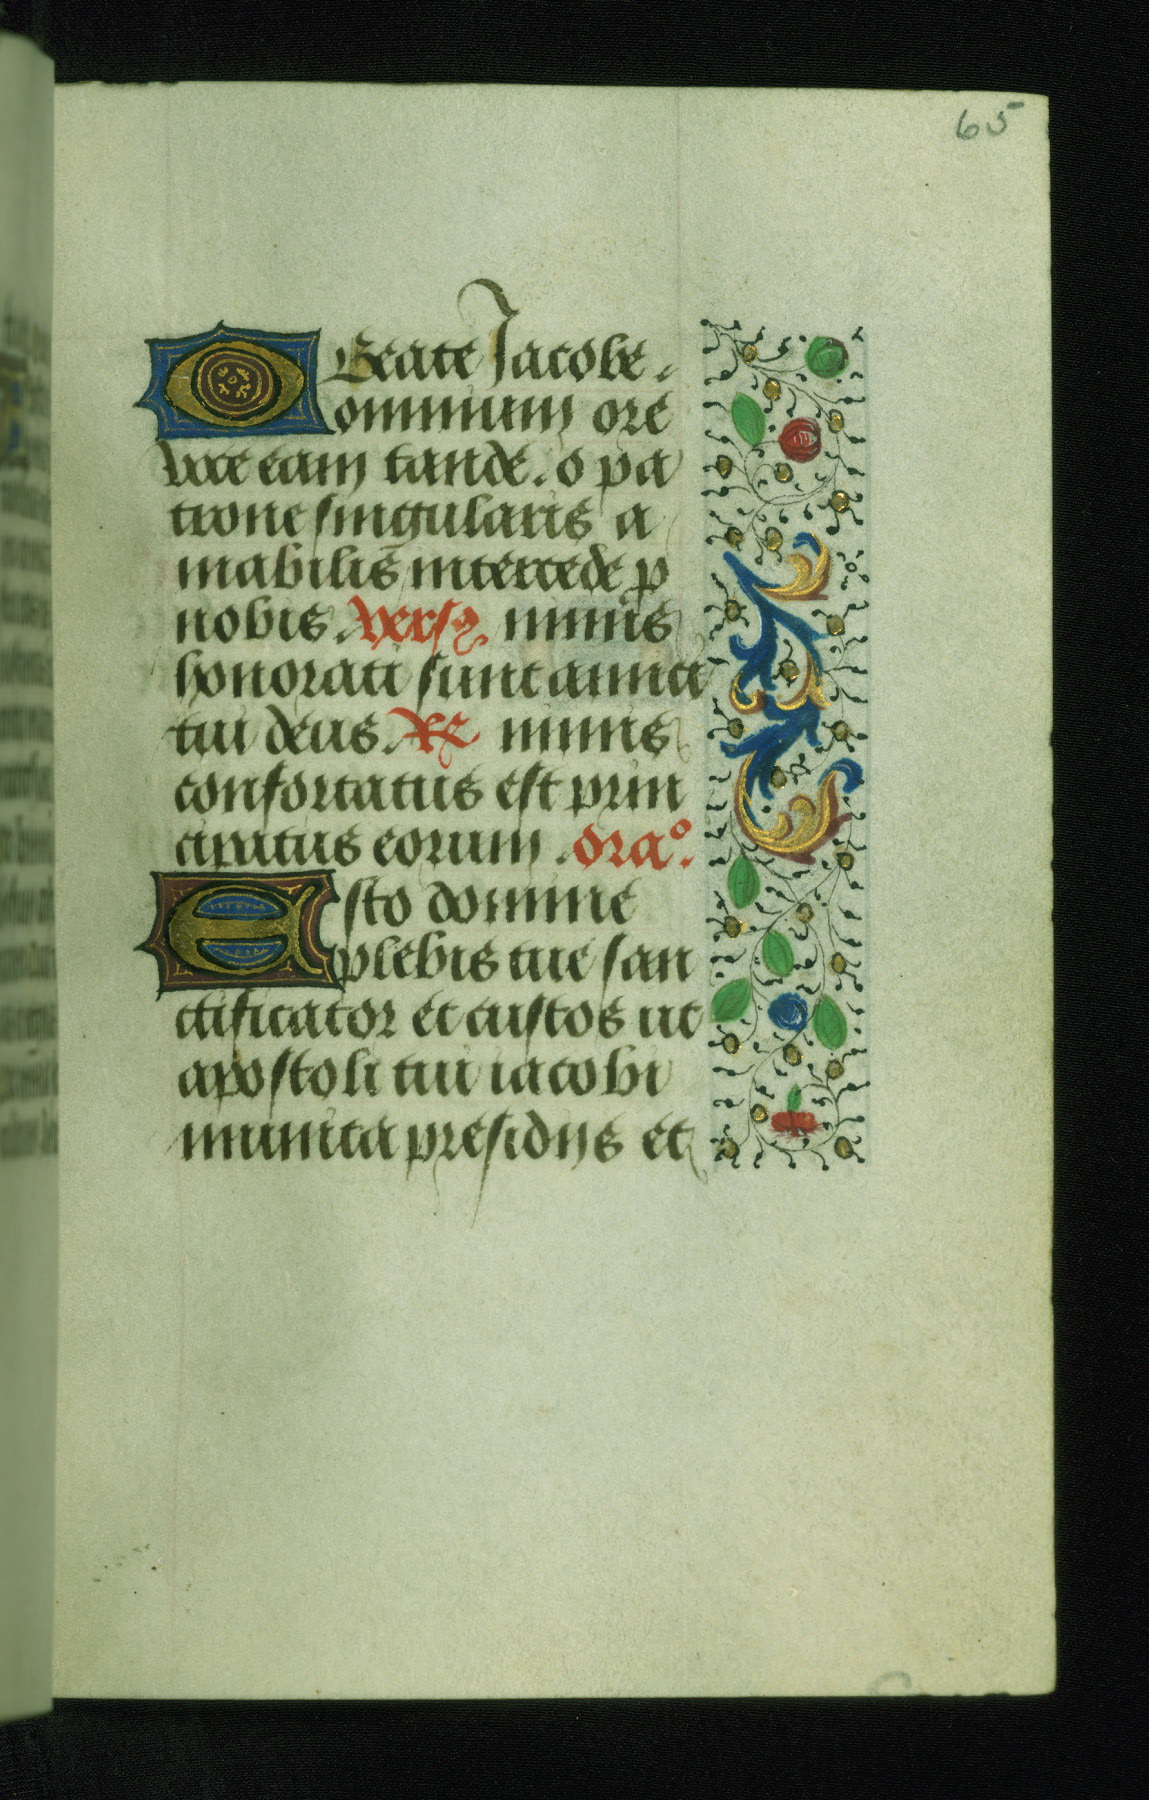 65
O Beate Jacobe.
omnium ore
voce eam tande. o pa
trone singularis a
mabilis intercede p
nobis. Vers9 nimis
honorati sunt amici
tui deus. R nimis
confortatus est prin
cipatus eorum. Orao.
Esto domine
plebis tue san
ctificator et custos ut
apostoli tui iacobi
munita presidijs et